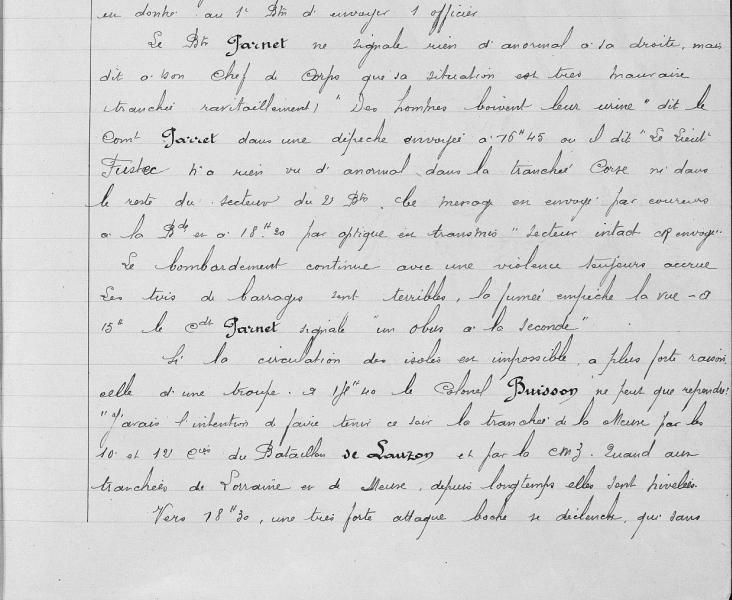 en donne au 1er Btn d'envoyer 1 officier
Le Btn Garnet ne signale rien d'anormal à sa droite, mais
dit à son Chef de Corps que sa situation est très mauvaise
(tranchée ravitaillement) "Des hommes boivent leur urine" dit le
Comt Garret dans une dépêche envoyée à 16H45 ou il dit "Le Lieutt
Fustec n'a rien vu d'anormal dans la tranchée Corse ni dans
le reste du secteur du 2e Btn. Ce message en envoyé par coureurs
à la Bde et à 18H20 par optique est transmis "secteur intact CR envoyé".
Le bombardement continue avec une violence toujours accrue
Les tirs de barrages sont terribles, la fumée empêche la vue - à
15H le Cdt Garnet signale "un obus à la seconde".
Si la circulation des isolés est impossible, à plus forte raison
celle d'une troupe. à 40 le Colonel Buisson ne peut que répondre:
"J'avais l'intention de faire tenir ce soir la tranchée de la Meuse par les
10e et 12e Cies du Bataillon de Lauzon et par la CM3. Quand aux
tranchées de Lorraine et de Meuse, depuis longtemps elles sont nivelées.
Vers 18H30, une très forte attaque boche se déclenche, qui sans